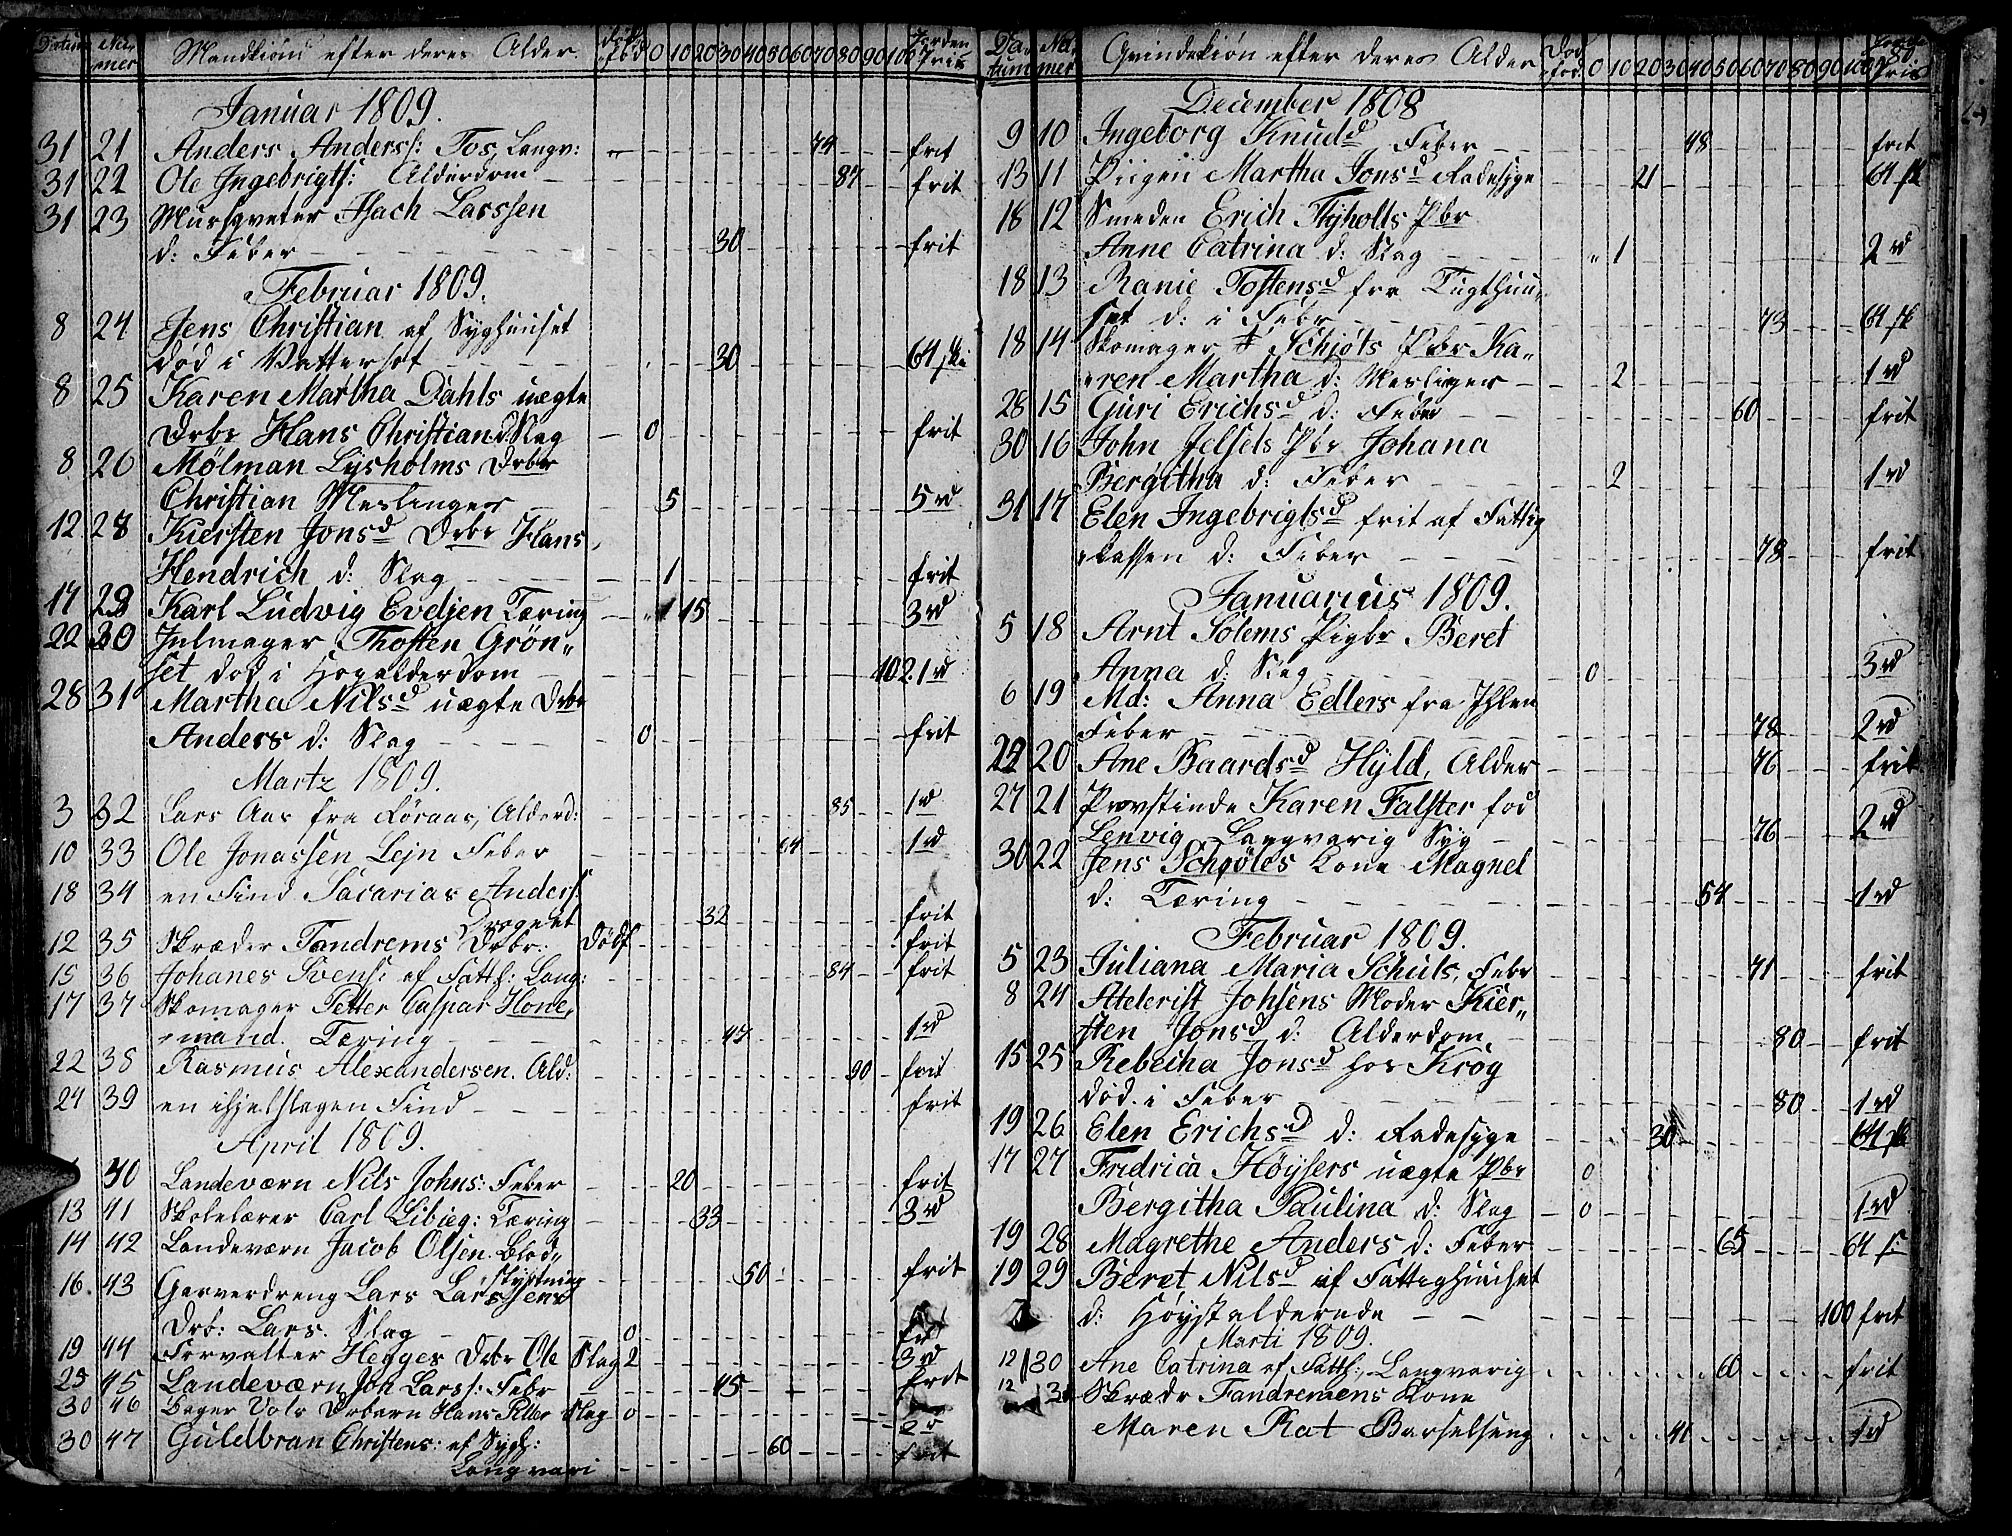 Datum Nummer Mandkiøn efter deres Alder. død fød 0 10 20 30 40 50 60 70 80 90 100 Jorden Pris
Januar 1809.
31 21 Anders Anderss: Tos, Langv: 74 frit
31 22 Ole Ingebrigts: Alderdom 87 frit
31 23 Mursqveter Isach Larssen
d: Feber 30 frit
Februar 1809.
8 24 Jens Christian af Syghuuset
død i Vattersot 30 64 sk:
8 25 Karen Martha Dahls uægte
Drbr Hans Christian d: Slag 0 frit
8 26 Mølman Lysholms Drbr
Christian Meslinger 5 5 rd
12 28 Kiersten Jonsd Drbr Hans
Hendrich d: Slag 1 frit
17 29 Karl Ludvig Evedjen Tæring 15 3 rd
22 30 Julmager Thosten Grøn„
set død i Høyalderdom 102 1 rd
28 31 Martha Nilsd uægte Drbr
Anders d: Slag 0 frit
Martz 1809.
3 32 Lars Aas fra Røraas, Alderd: 85 1 rd
10 33 Ole Jonassen Lejn Feber 64 1 rd
18 34 en Find Sacarias Anders:
Drognet 32 frit
12 35 Skræder Tandrems Drbr: Dødf frit
15 36 Johanes Svens: af Fatth: Lang: 84 frit
17 37 Skomager Petter Caspar Hone„
„mand. Tæring 47 1 rd
22 38 Rasmus Alexandersen. Ald: 90 frit
24 39 en ihjelslagen Find frit
April 1809.
40 Landeværn Nils Johns: Feber 20 frit
13 41 Skolelærer Carl Libieg: Tæring 33 3 rd
14 42 Landeværn Jacob Olsen. Blod„
styrtning 50 frit
16. 43 Garverdreng Lars Larssens
Drb: Lars. Slag 0
19 44 Forvalter Hegges Drbr Ole Slag 2 3 rd
25 45 Landeværn Joh Larss: Febr 45 frit
30 46 Bager Vols Drbarn Hans Peter Slag 0 2 rd
30 47 Guldbran Christens: af Sygh:
Langvari 60 frit
Datum Nummer Qvindekiøn efter deres Alder Død fød 0 10 20 30 40 50 60 70 80 90 100 Jorden Pris
December 1808
9 10 Ingeborg Knudd Feber 48 frit
13 11 Piigen Martha Jonsd Radesyge 21 64 sk
18 12 Smeden Erich Flyholts Pbr
Anne Catrina d: Slag 1 2 rd
18 13 Ranie Tostensd fra Tugthuu„
set d: i Febr 73 64 sk
18 14 Skomager Schjøts Pbr Ka„
„ren Martha d: Meslinger 2 1 rd
28 15 Guri Erichsd d: Feber 60 frit
30 16 John Jelsets Pbr Johana
Bergitha d: Feber 2 1 rd
31 17 Elen Ingebrigtsd frit af Fattig
classen d: Feber 78 frit
Januarius 1809.
5 18 Arnt Solems Pigbr Beret
Anna d: Slag 0 3 rd
6 19 Md: Anna Edlers fra Ihlen
Feber 78 2 rd
20 Ane Baardsd Hyld, Alder 76 frit
27 21 Provstinde Karen Falster fød
Lenvig Langvarig Syg 76 2 rd
30 22 Jens Schjøles Kone Magnel
d: Tæring 54 1 rd
Februar 1809.
5 23 Juliana Maria Schults, Febr 71 frit
8 24 Atelerist Johsens Moder Kier„
sten Jonsd d: Alderdom 80 frit
15 25 Rebecha Jonsd hos Krog
død i Feber 80 1 rd
19 26 Elen Erichsd d: Radesyge 30 64 sk
17 27 Fridrica Høysers uægte Pbr 0
Bergitha Paulina d: Slag 0 1 rd
19 28 Magrethe Anders d: Feber 65 64 s
19 29 Beret Nilsd af Fattighuuset
d: Høystalderede 100 frit
Marti 1809.
12 30 Ane Catrina af Fatth:, Langvarig 60 frit
12 31 Skrædr Tandremens Kone
Maren Kat Barselseng 41 1 rd